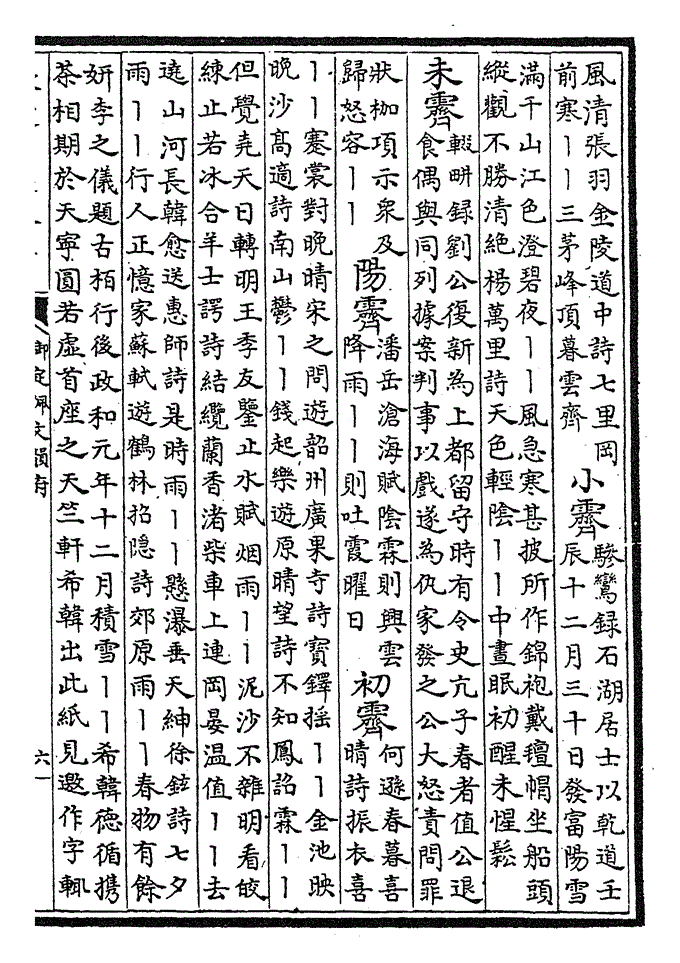 風清張羽金陵道中詩七里岡
前寒丨丨三茅峰頂暮雲齊
小霽
驂鸞録石湖居士以乾道壬
辰十二月三十日發富陽雪
滿千山江色澄碧夜丨丨風急寒甚披所作錦袍戴氊帽坐船頭
縱觀不勝清絶楊萬里詩天色輕陰丨丨中晝眠初醒未惺鬆
未霽
輟畊録劉公復新為上都留守時有令史亢子春者值公退
食偶與同列據案判事以戲遂為仇家發之公大怒責問罪
狀枷項示衆及
歸怒容丨丨
陽霽
潘岳滄海賦陰霖則興雲
降雨丨丨則吐霞曜日
初霽
何遜春暮喜
晴詩振衣喜
丨丨褰裳對晚晴宋之問遊韶州廣果寺詩寶鐸摇丨丨金池映
晚沙高適詩南山鬱丨丨錢起樂遊原晴望詩不知鳳詔霖丨丨
但覺堯天日轉明王季友鑒止水賦烟雨丨丨泥沙不雜明看皎
練止若冰合羊士諤詩結纜蘭香渚柴車上連岡晏温值丨丨去
遶山河長韓愈送惠師詩是時雨丨丨懸瀑垂天紳徐鉉詩七夕
雨丨丨行人正憶家蘇軾遊鶴林招隐詩郊原雨丨丨春物有餘
妍李之儀題古栢行後政和元年十二月積雪丨丨希韓德循携
茶相期於天寧圓若虚首座之天竺軒希韓出此紙見邀作字輒
御定佩文韻府
六一